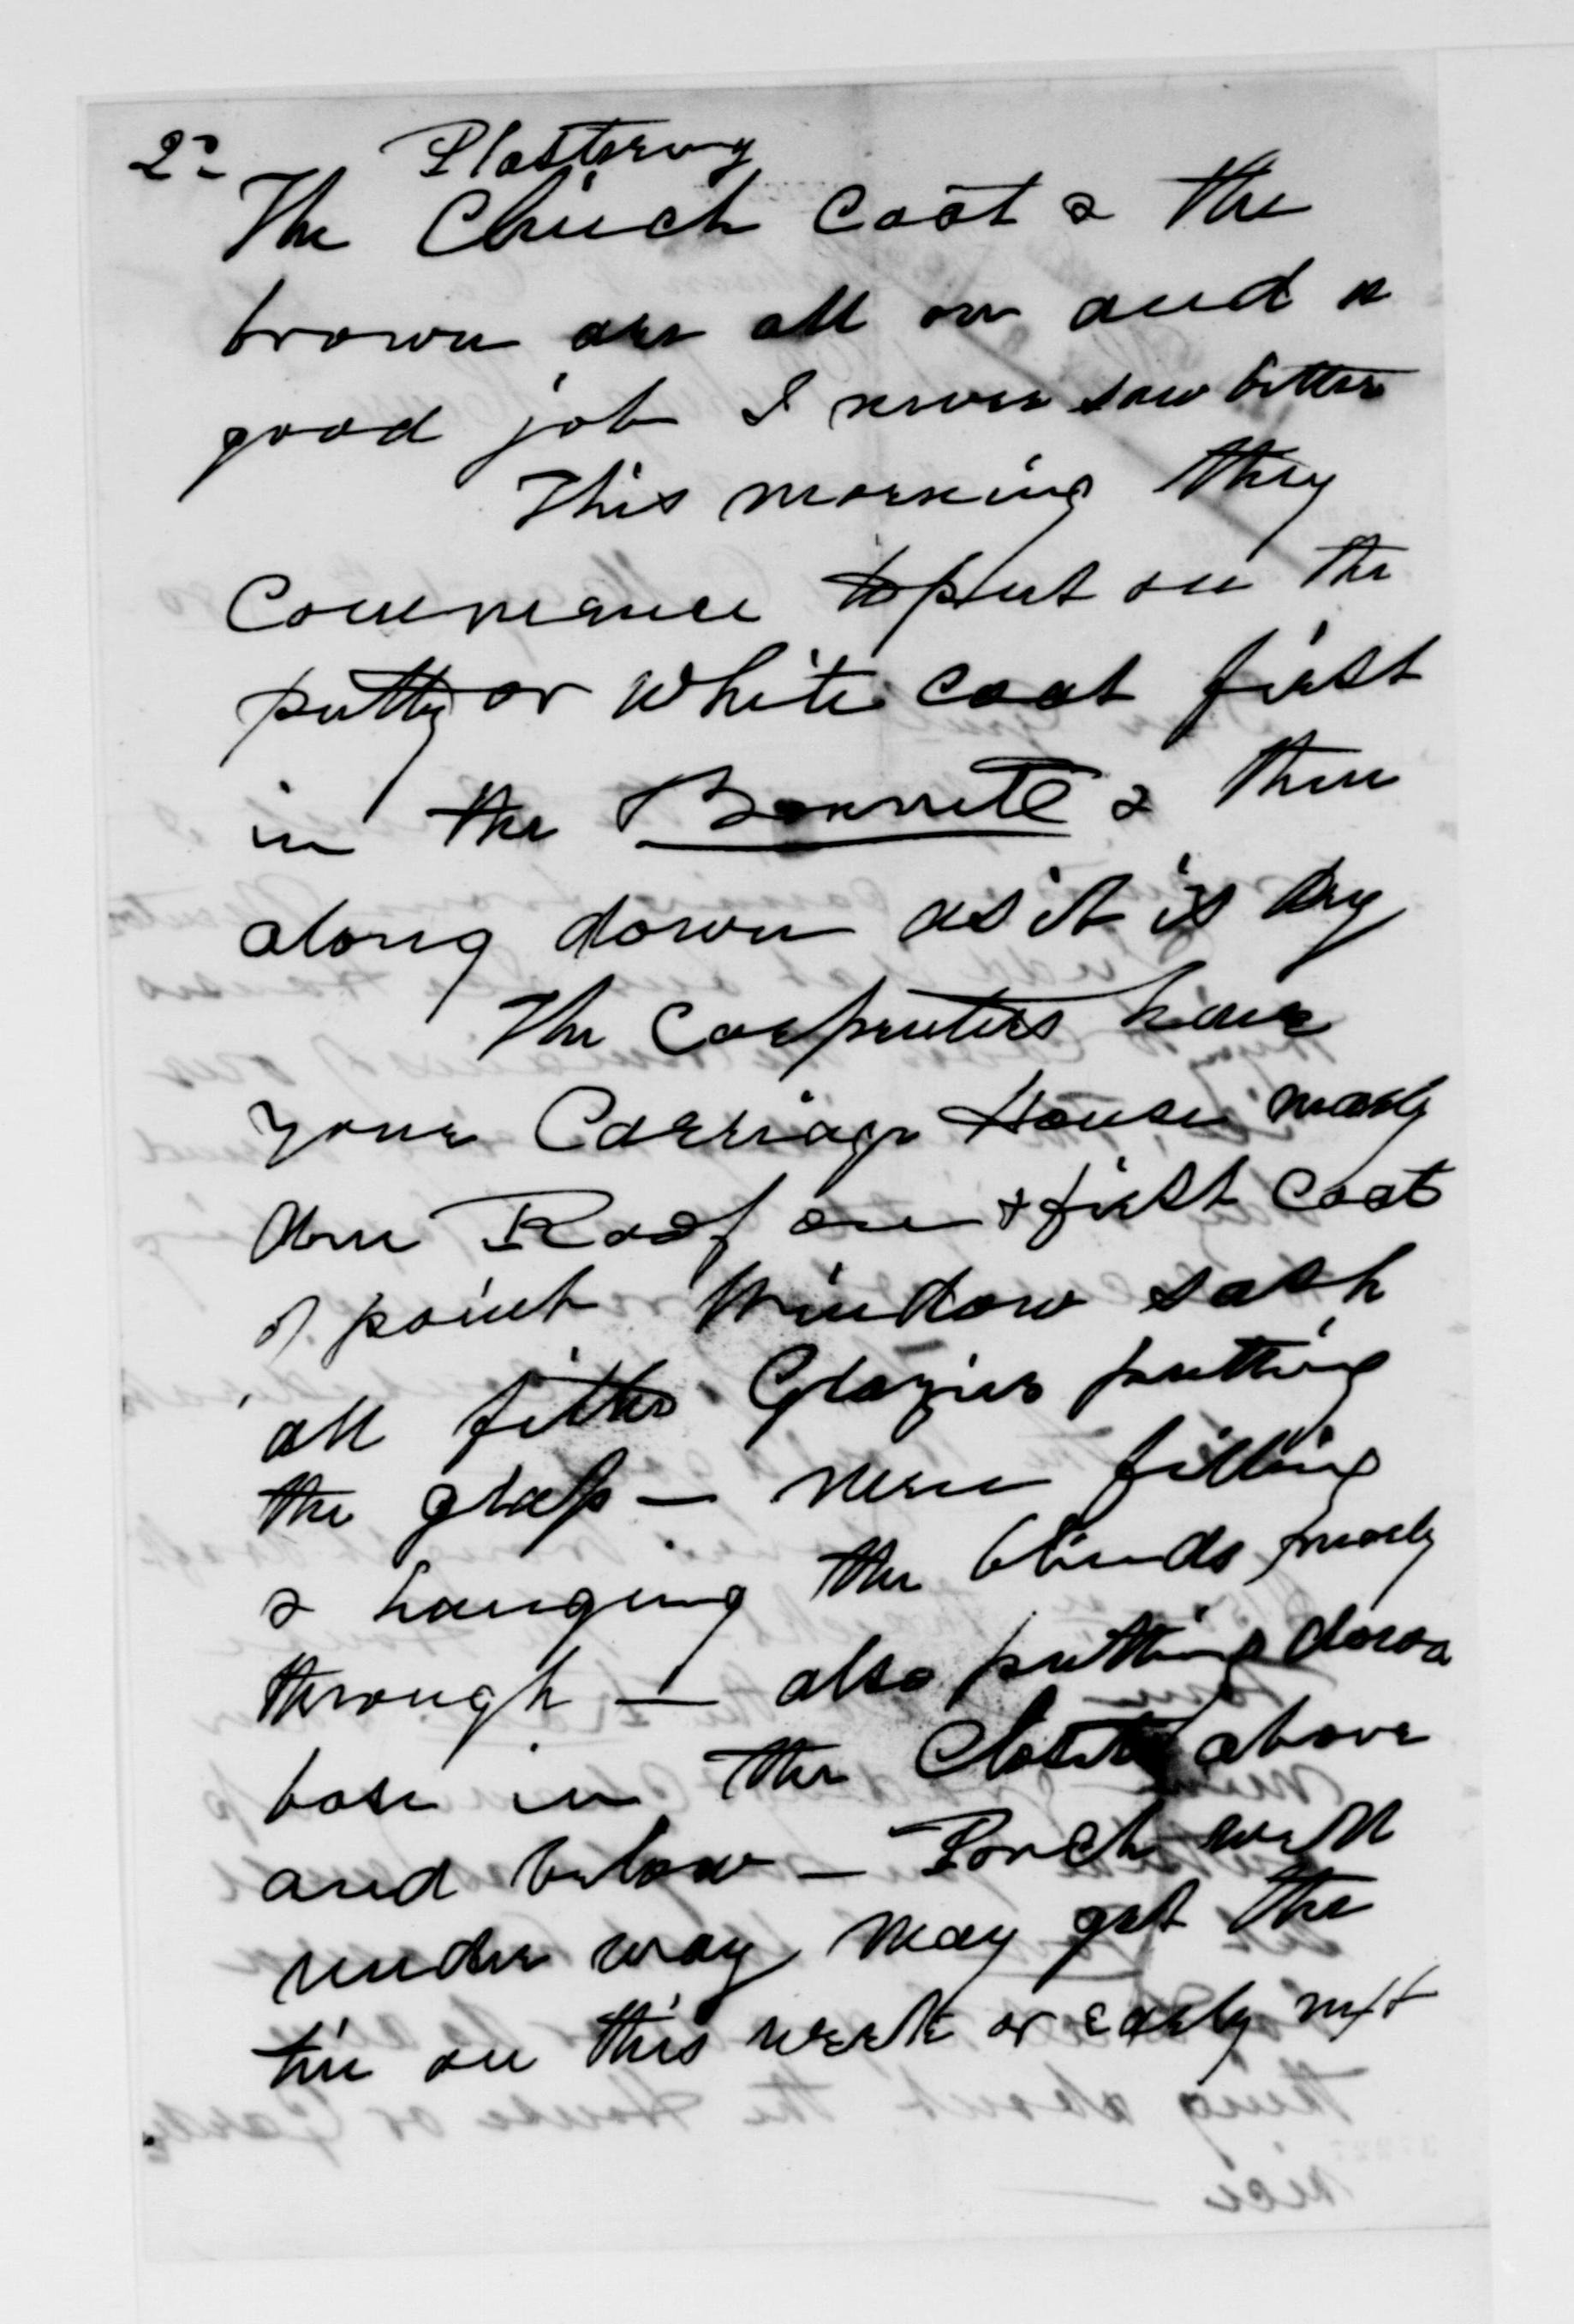 2d Plastering
The Clinch Coat & the
brown are all on and a
good job I never saw better
This morning they
Commence to put on the
putty or White coat first
in the Bonnette & then
along down as it is dry
The Carpenters have
your Carriage House nearly
done Roof on & first Coat
of paint Window sash
all fitted Glaziers putting
the glass — were fitting
& hanging the blinds nearly
through — also putting down
base in the Closets above
and below — Porch well
under way May get the
tin on this week or early next